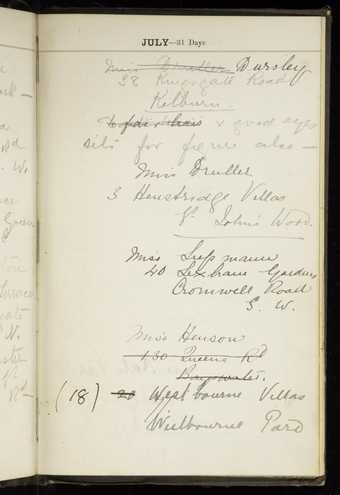 JULY—31 Days
Miss Drutler Dursley
28 Kingsgate Road
Kilburn.
& fair hair & good eyes
sits for figure also —
Miss Drutler
3 Henstridge Villas
St. John's Wood.
Miss Lippmann
40 Lexham Gardens
Cromwell Road
S. W.
Miss Henson
130 Queens Rd
Bayswater.
(18) 20 Westbourne Villas
Westbourne Park